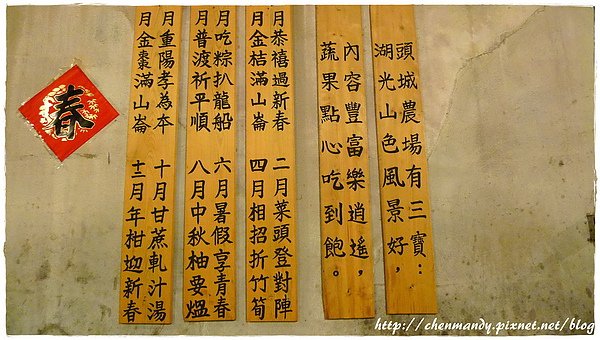 頭城農場有三寶:
湖光山色風景好,
內容豐富樂逍遙,
蔬果點心吃到飽。
月恭禧過新春 二月菜頭登對陣
月金桔滿山崙 四月相招折竹筍
月吃粽扒龍船 六月暑假享青春
月普渡祈平順 八月中秋柚要熅
月重陽孝為本 十月甘蔗軋汁湯
月金棗滿山崙 十二月年柑迎新春
春
http://chenmandy.pixnet.net/blog